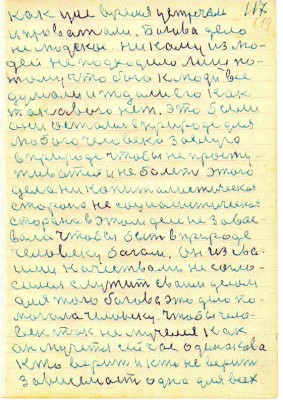 117
как уже время устречали
и провожали. Богова дело
не людское. никому из лю-
дей не подходило лиш по-
тому что бога людям все
думали и ждали его как
такового нет. Это были
они остались в природе для
любого человека заслуга
в природе чтобы не просту-
живатся и не болет этого
дела ни капиталистическая
сторона не социалистическая
сторона в этом деле не завое-
вала чтобы быт в природе
человеку богам. он из сва-
ими качествами не согло-
сился служит сваим делом
для того богова это дело по-
могала человеку. чтобы чело-
век так не мучился как
он мучется сейчас одинакова
кто верит и кто не верит
зависимост одна для всех